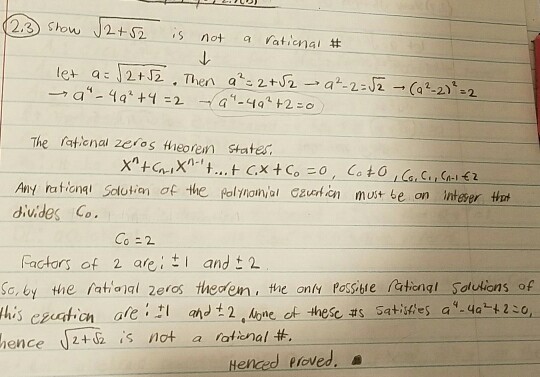 2.3) Show √(2+√2) is not a rational #
↓
let a = √(2+√2). Then a² = 2+√2 → a²-2=√2 → (a²-2)²=2
→ a⁴ - 4a² + 4 = 2 → a⁴-4a²+2=0
The rational zeros theorem states,
Xⁿ + Cₙ₋₁Xⁿ⁻¹ + ... + C₁X + C₀ = 0, C₀≠0, C₀, C₁, Cₙ₋₁ ∈ Z
Any rational solution of the polynomial equation must be an integer that
divides C₀.
C₀ = 2
Factors of 2 are: ±1 and ±2
So, by the rational zeros theorem, the only possible rational solutions of
this equation are: ±1 and ±2. None of these #s satisfies a⁴-4a²+2=0,
hence √(2+√2) is not a rational #.
Henced proved. ■